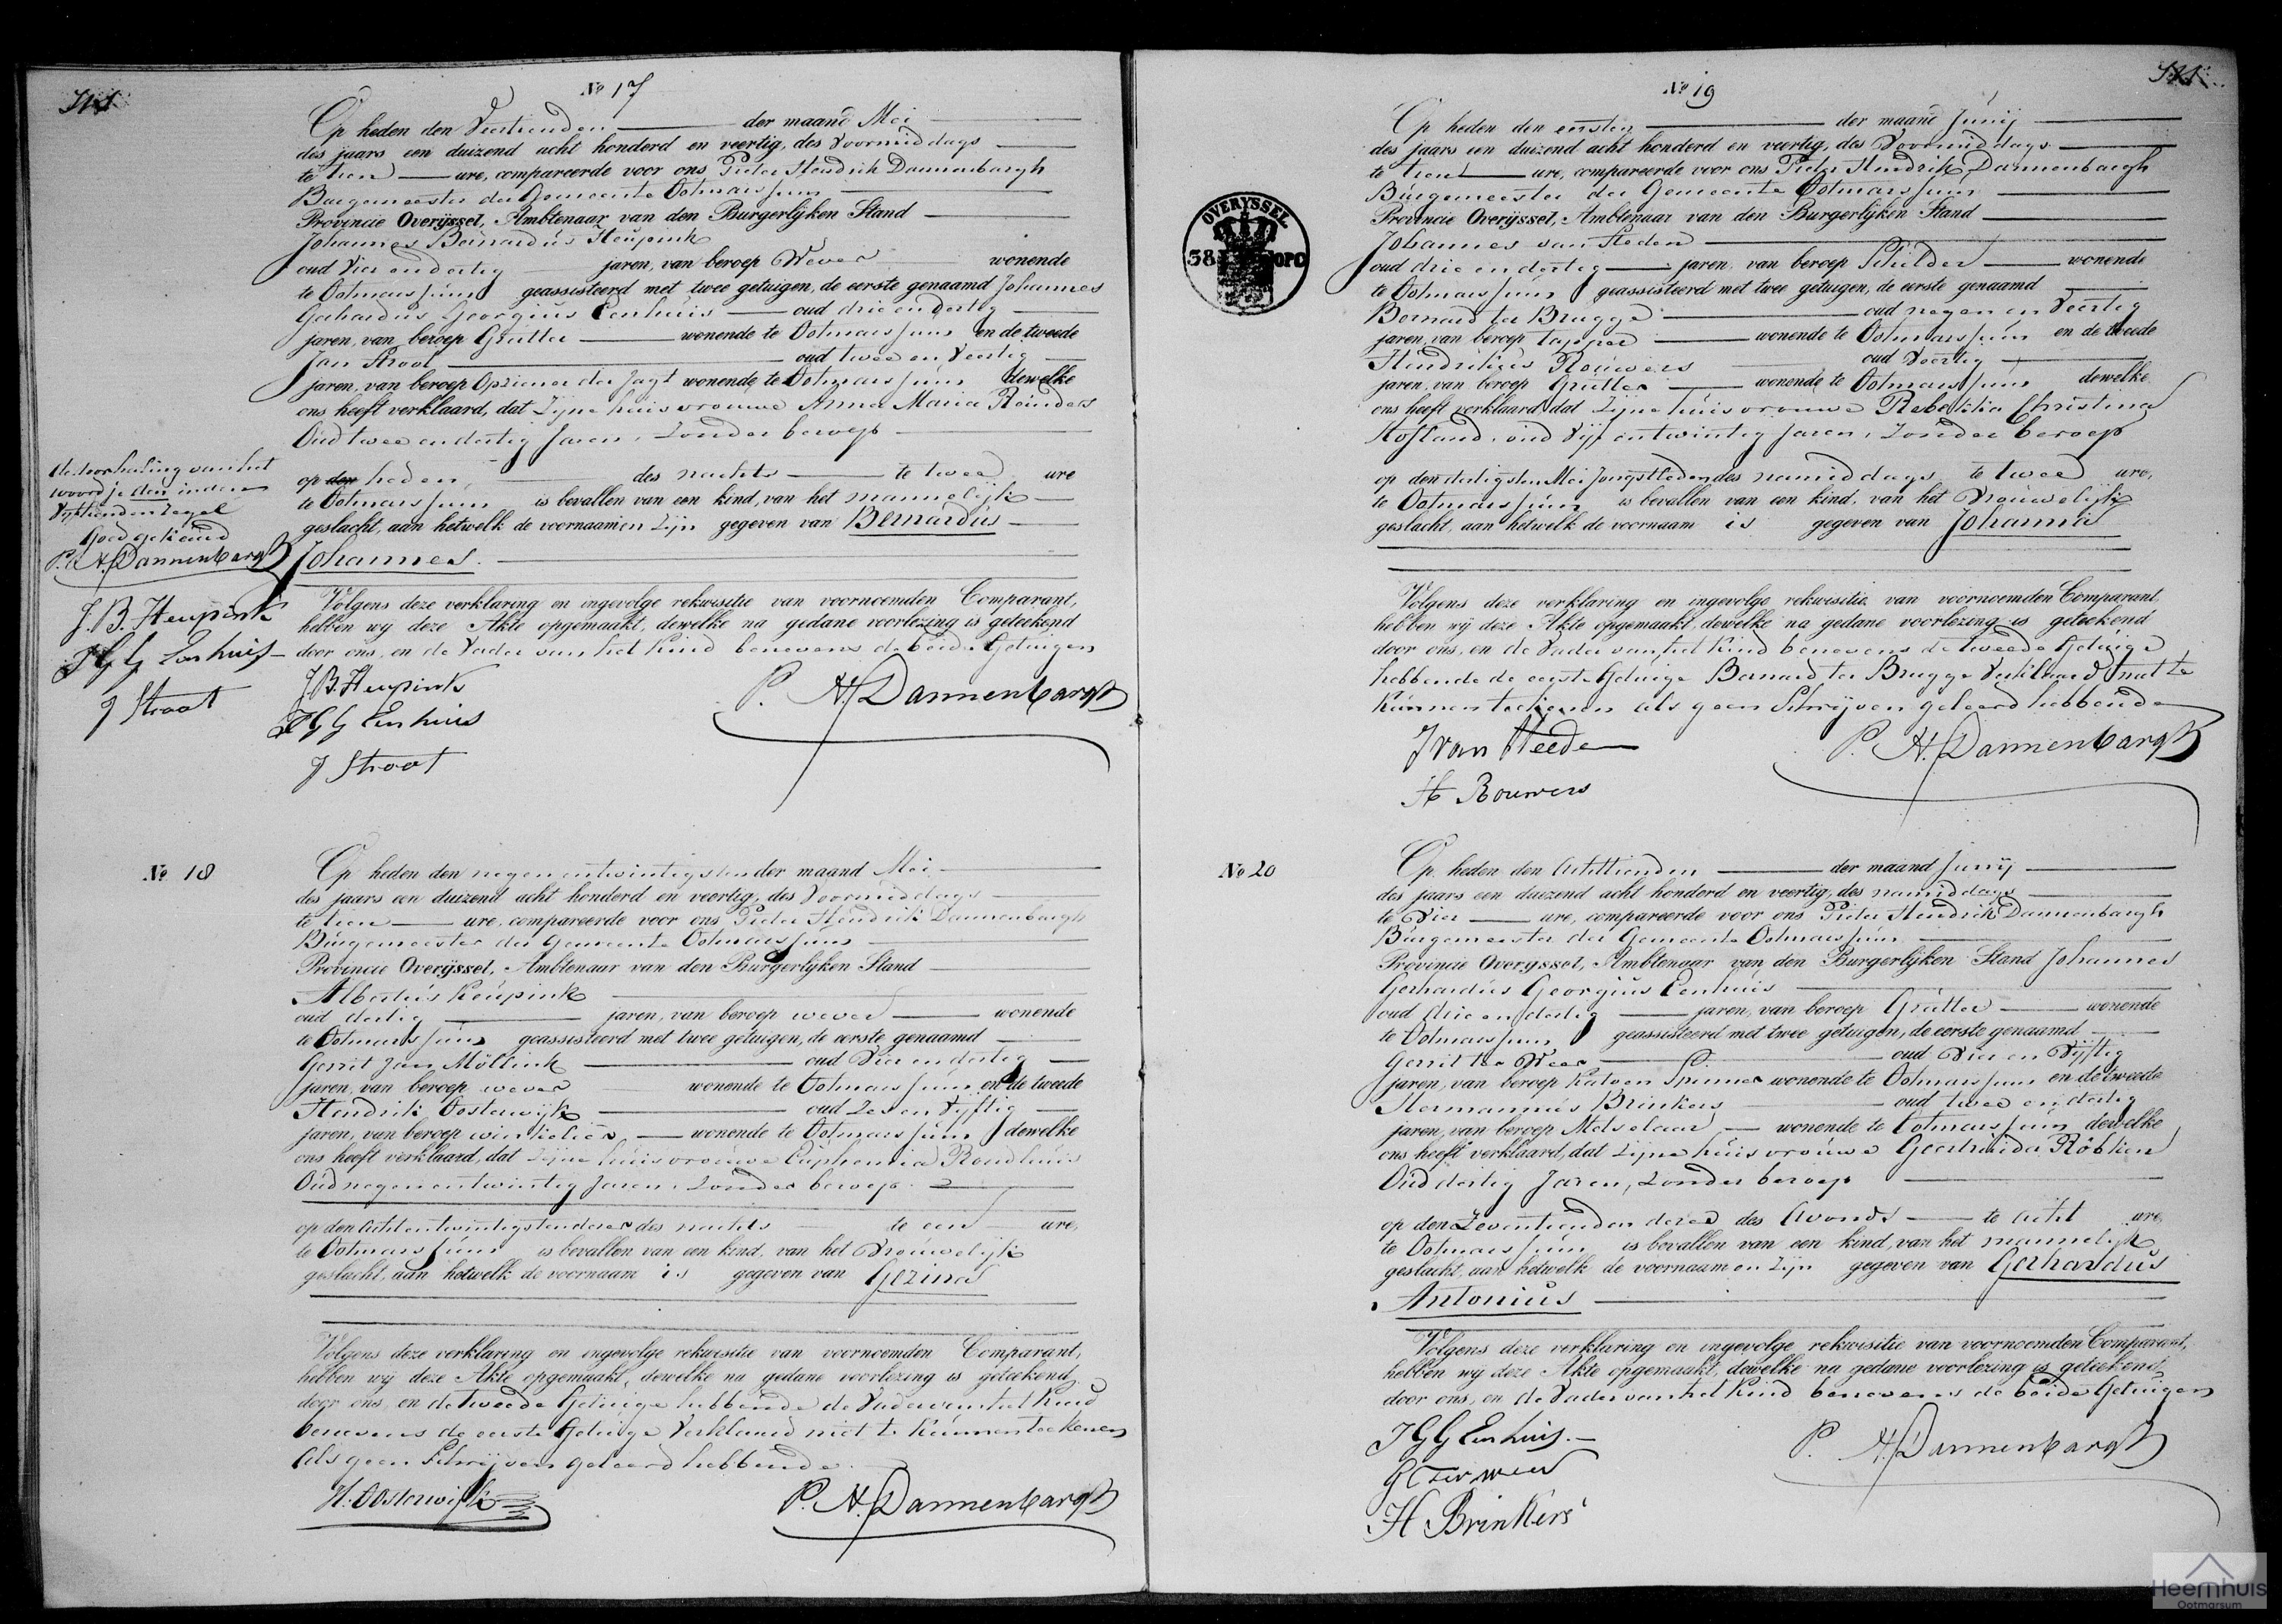 № 17
Op heden den Veertienden der maand Mei
des jaars een duizend acht honderd en veertig, des Voormiddags
te tien ure, compareerde voor ons Pieter Hendrik Dannenbargh
Burgemeester der Gemeente Ootmarssum
Provincie Overijssel, Ambtenaar van den Burgerlijken Stand
Johannes Bernardus Heupink
oud Vier en dertig jaren, van beroep Wever wonende
te Ootmarssum geassisteerd met twee getuigen, de eerste genaamd Johannes
Gerhardus Georgius Eenhuis oud drie en dertig
jaren, van beroep Grutter wonende te Ootmarssum en de tweede
Jan Stroot oud twee en Veertig
jaren, van beroep Opziener der Jagt wonende te Ootmarssum dewelke
ons heeft verklaard, dat Zijne huisvrouwe Anna Maria Reinders
Oud twee en dertig Jaren, Zonder beroep
op den heden, des nachts te twee ure
te Ootmarssum is bevallen van een kind, van het mannelijk
geslacht, aan hetwelk de voornaamen Zijn gegeven van Bernardus
Johannes.
Volgens deze verklaring en ingevolge rekwisitie van voornoemden Comparant,
hebben wij deze Akte opgemaakt, dewelke na gedane voorlezing is geteekend
door ons, en de Vader van het Kind benevens de beide Getuigen
J. B. Heupink
J G G Eenhuis
J Stroot
P. H. Dannenbargh
de doorhaling van het
woordje den in den
Vijftienden regel
Goedgekeurd
P. H. Dannenbargh
J. B. Heupink
J G G Eenhuis
J Stroot
№ 18
Op heden den negen en twintigsten der maand Mei
des jaars een duizend acht honderd en veertig, des Voormiddags
te tien ure, compareerde voor ons Pieter Hendrik Dannenbargh
Burgemeester der Gemeente Ootmarssum
Provincie Overijssel, Ambtenaar van den Burgerlijken Stand
Albertus Keupink
oud dertig jaren, van beroep wever wonende
te Ootmarssum geassisteerd met twee getuigen, de eerste genaamd
Gerrit Jan Möllink oud Vier en dertig
jaren, van beroep wever wonende te Ootmarssum en de tweede
Hendrik Oosterwijk oud Zes en Vijftig
jaren, van beroep winkelier wonende te Ootmarssum dewelke
ons heeft verklaard, dat Zijne huisvrouwe Euphemia Rondhuis
Oud negen en twintig Jaren, Zonder beroep
op den Acht en twintigsten dezer des nachts te een ure,
te Ootmarssum is bevallen van een kind, van het Vrouwelijk
geslacht, aan hetwelk de voornaam is gegeven van Gezina
Volgens deze verklaring en ingevolge rekwisitie van voornoemden Comparant,
hebben wij deze Akte opgemaakt, dewelke na gedane voorlezing is geteekend
door ons, en de Tweede Getuige hebbende de Vader van het Kind
benevens de eerste Getuige Verklaard niet te Kunnen teekenen
Als geen Schrijven geleerd hebbende
H. Oosterwijk
P. H. Dannenbargh
№ 19
Op heden den eersten der maand Junij
des jaars een duizend acht honderd en veertig, des Voormiddags
te tien ure, compareerde voor ons Pieter Hendrik Dannenbargh
Burgemeester der Gemeente Ootmarssum
Provincie Overijssel, Ambtenaar van den Burgerlijken Stand
Johannes van Steden
oud drie en dertig jaren, van beroep Schilder wonende
te Ootmarssum geassisteerd met twee getuigen, de eerste genaamd
Bernard ter Brugge oud negen en Veertig
jaren, van beroep tapper wonende te Ootmarssum en de tweede
Hendrikus Rouwers oud Veertig
jaren, van beroep Grutter wonende te Ootmarssum dewelke
ons heeft verklaard, dat Zijne huisvrouwe Rebekka Christina
Hofland, oud Vijf en twintig Jaren, Zonder beroep
op den dertigsten Mei Jongstleden des namiddags te twee ure,
te Ootmarssum is bevallen van een kind, van het Vrouwelijk
geslacht, aan hetwelk de voornaam is gegeven van Johanna
Volgens deze verklaring en ingevolge rekwisitie van voornoemden Comparant,
hebben wij deze Akte opgemaakt, dewelke na gedane voorlezing is geteekend
door ons, en de Vader van het Kind benevens de tweede Getuige
hebbende de eerste Getuige Bernard ter Brugge Verklaard niet te
Kunnen teekenen als geen Schrijven geleerd hebbende
J van Steeden
H Rouwers
P. H. Dannenbargh
OVERYSSEL
38 OPC
№ 20
Op heden den Achttienden der maand Junij
des jaars een duizend acht honderd en veertig, des namiddags
te Vier ure, compareerde voor ons Pieter Hendrik Dannenbargh
Burgemeester der Gemeente Ootmarssum
Provincie Overyssel, Ambtenaar van den Burgerlijken Stand Johannes
Gerhardus Georgius Eenhuis
oud drie en dertig jaren, van beroep Grutter wonende
te Ootmarssum geassisteerd met twee getuigen, de eerste genaamd
Gerrit ter Weer oud Vier en Vijftig
jaren, van beroep Katoen Spinner wonende te Ootmarssum en de tweede
Hermannus Brinkers oud twee en dertig
jaren, van beroep Metselaar wonende te Ootmarssum dewelke
ons heeft verklaard, dat Zijne huisvrouwe Geertruida Röbken
Oud dertig Jaren, Zonder beroep
op den Zeventienden dezer des Avonds te acht ure,
te Ootmarssum is bevallen van een kind, van het mannelijk
geslacht, aan hetwelk de voornaamen Zijn gegeven van Gerhardus
Antonius
Volgens deze verklaring en ingevolge rekwisitie van voornoemden Comparant,
hebben wij deze Akte opgemaakt, dewelke na gedane voorlezing is geteekend
door ons, en de Vader van het Kind benevens de beide Getuigen
J G G Eenhuis
G ter Weer
H Brinkers
P. H. Dannenbargh
Heemhuis
Ootmarsum